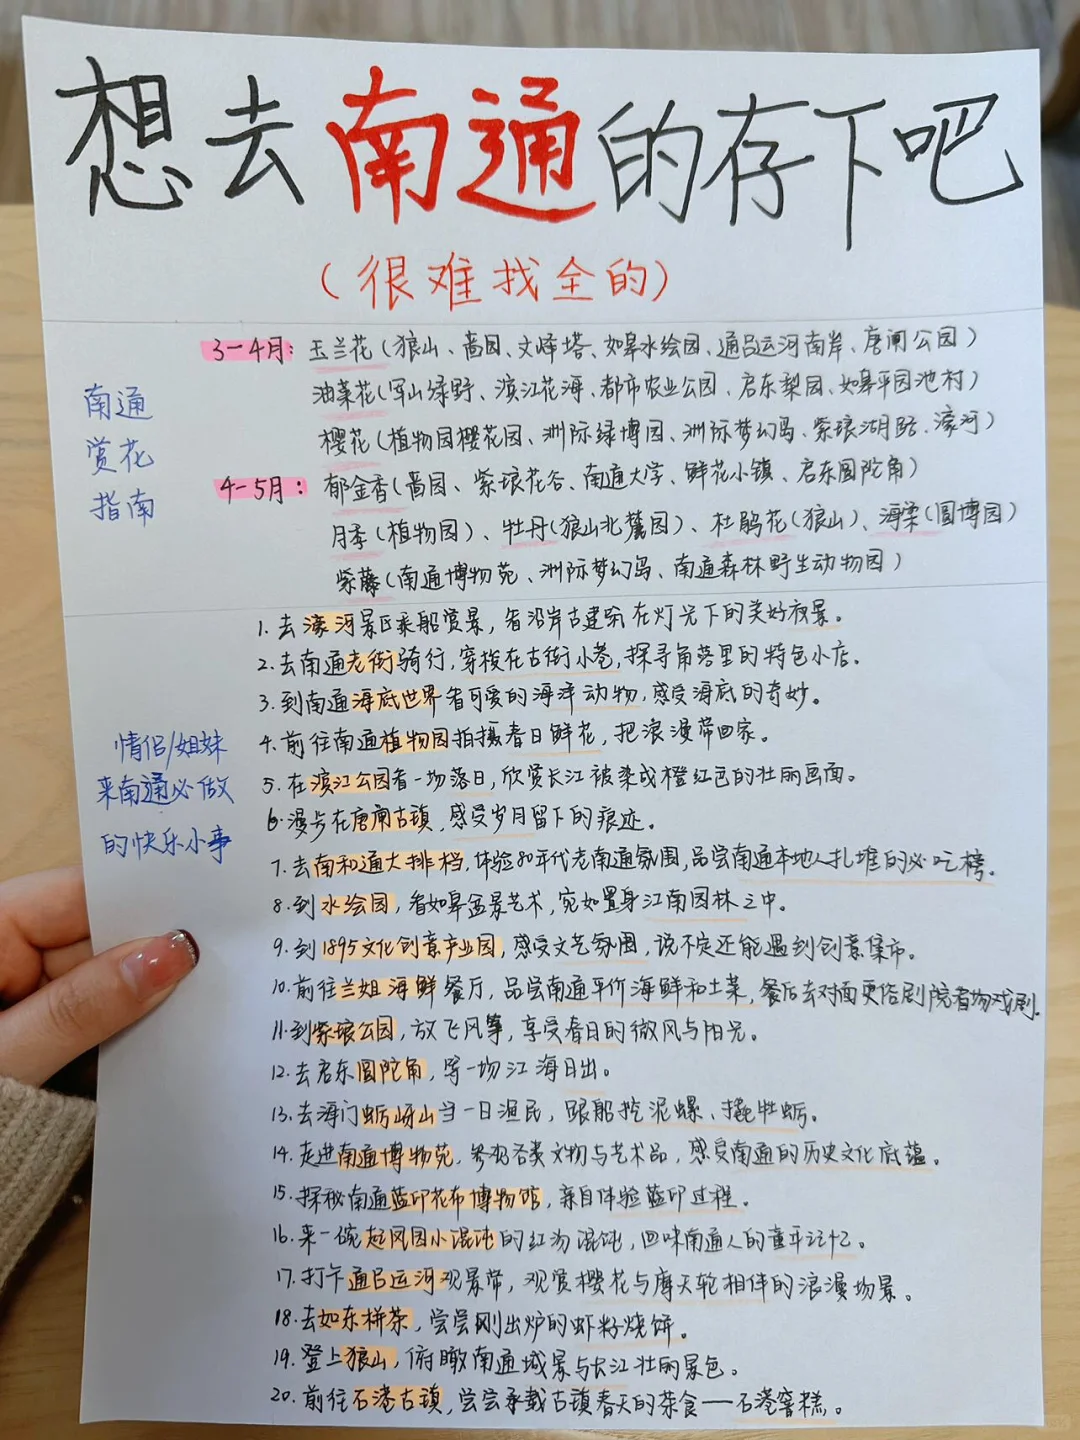 想去南通的存下吧
(很难找全的)
南通
赏花
指南
3-4月: 玉兰花(狼山、啬园、文峰塔、如皋水绘园、通吕运河南岸、唐闸公园)
油菜花(军山绿野、滨江花海、都市农业公园、启东梨园、如皋平园池村)
樱花(植物园樱花园、洲际绿博园、洲际梦幻岛、紫琅湖路、濠河)
4-5月: 郁金香(啬园、紫琅花谷、南通大学、鲜花小镇、启东圆陀角)
月季(植物园)、牡丹(狼山北麓园)、杜鹃花(狼山)、海棠(园博园)
紫藤(南通博物苑、洲际梦幻岛、南通森林野生动物园)
情侣/姐妹
来南通必做
的快乐小事
1.去濠河景区乘船赏景,看沿岸古建筑在灯光下的美好夜景。
2.去南通老街骑行,穿梭在古街小巷,探寻角落里的特色小店。
3.到南通海底世界看可爱的海洋动物,感受海底的奇妙。
4.前往南通植物园拍摄春日鲜花,把浪漫带回家。
5.在滨江公园看一场落日,欣赏长江被染成橙红色的壮丽画面。
6.漫步在唐闸古镇,感受岁月留下的痕迹。
7.去南和通大排档,体验80年代老南通氛围,品尝南通本地人扎堆的必吃榜。
8.到水绘园,看如皋盆景艺术,宛如置身江南园林之中。
9.到1895文化创意产业园,感受文艺氛围,说不定还能遇到创意集市。
10.前往兰姐海鲜餐厅,品尝南通平价海鲜和土菜,餐后去对面更俗剧院看场戏剧.
11.到紫琅公园,放飞风筝,享受春日的微风与阳光。
12.去启东圆陀角,等一场江海日出。
13.去海门蛎岈山当一日渔民,跟船挖泥螺、撬牡蛎。
14.走进南通博物苑,参观各类文物与艺术品,感受南通的历史文化底蕴。
15.探秘南通蓝印花布博物馆,亲自体验蓝印过程。
16.来一碗赵凤园小混沌的红汤混沌,回味南通人的童年记忆。
17.打卡通吕运河观景带,观赏樱花与摩天轮相伴的浪漫场景。
18.去如东栟茶,尝尝刚出炉的虾籽烧饼。
19.登上狼山,俯瞰南通城景与长江壮丽景色。
20.前往石港古镇,尝尝承载古镇春天的茶食——石港窨糕。